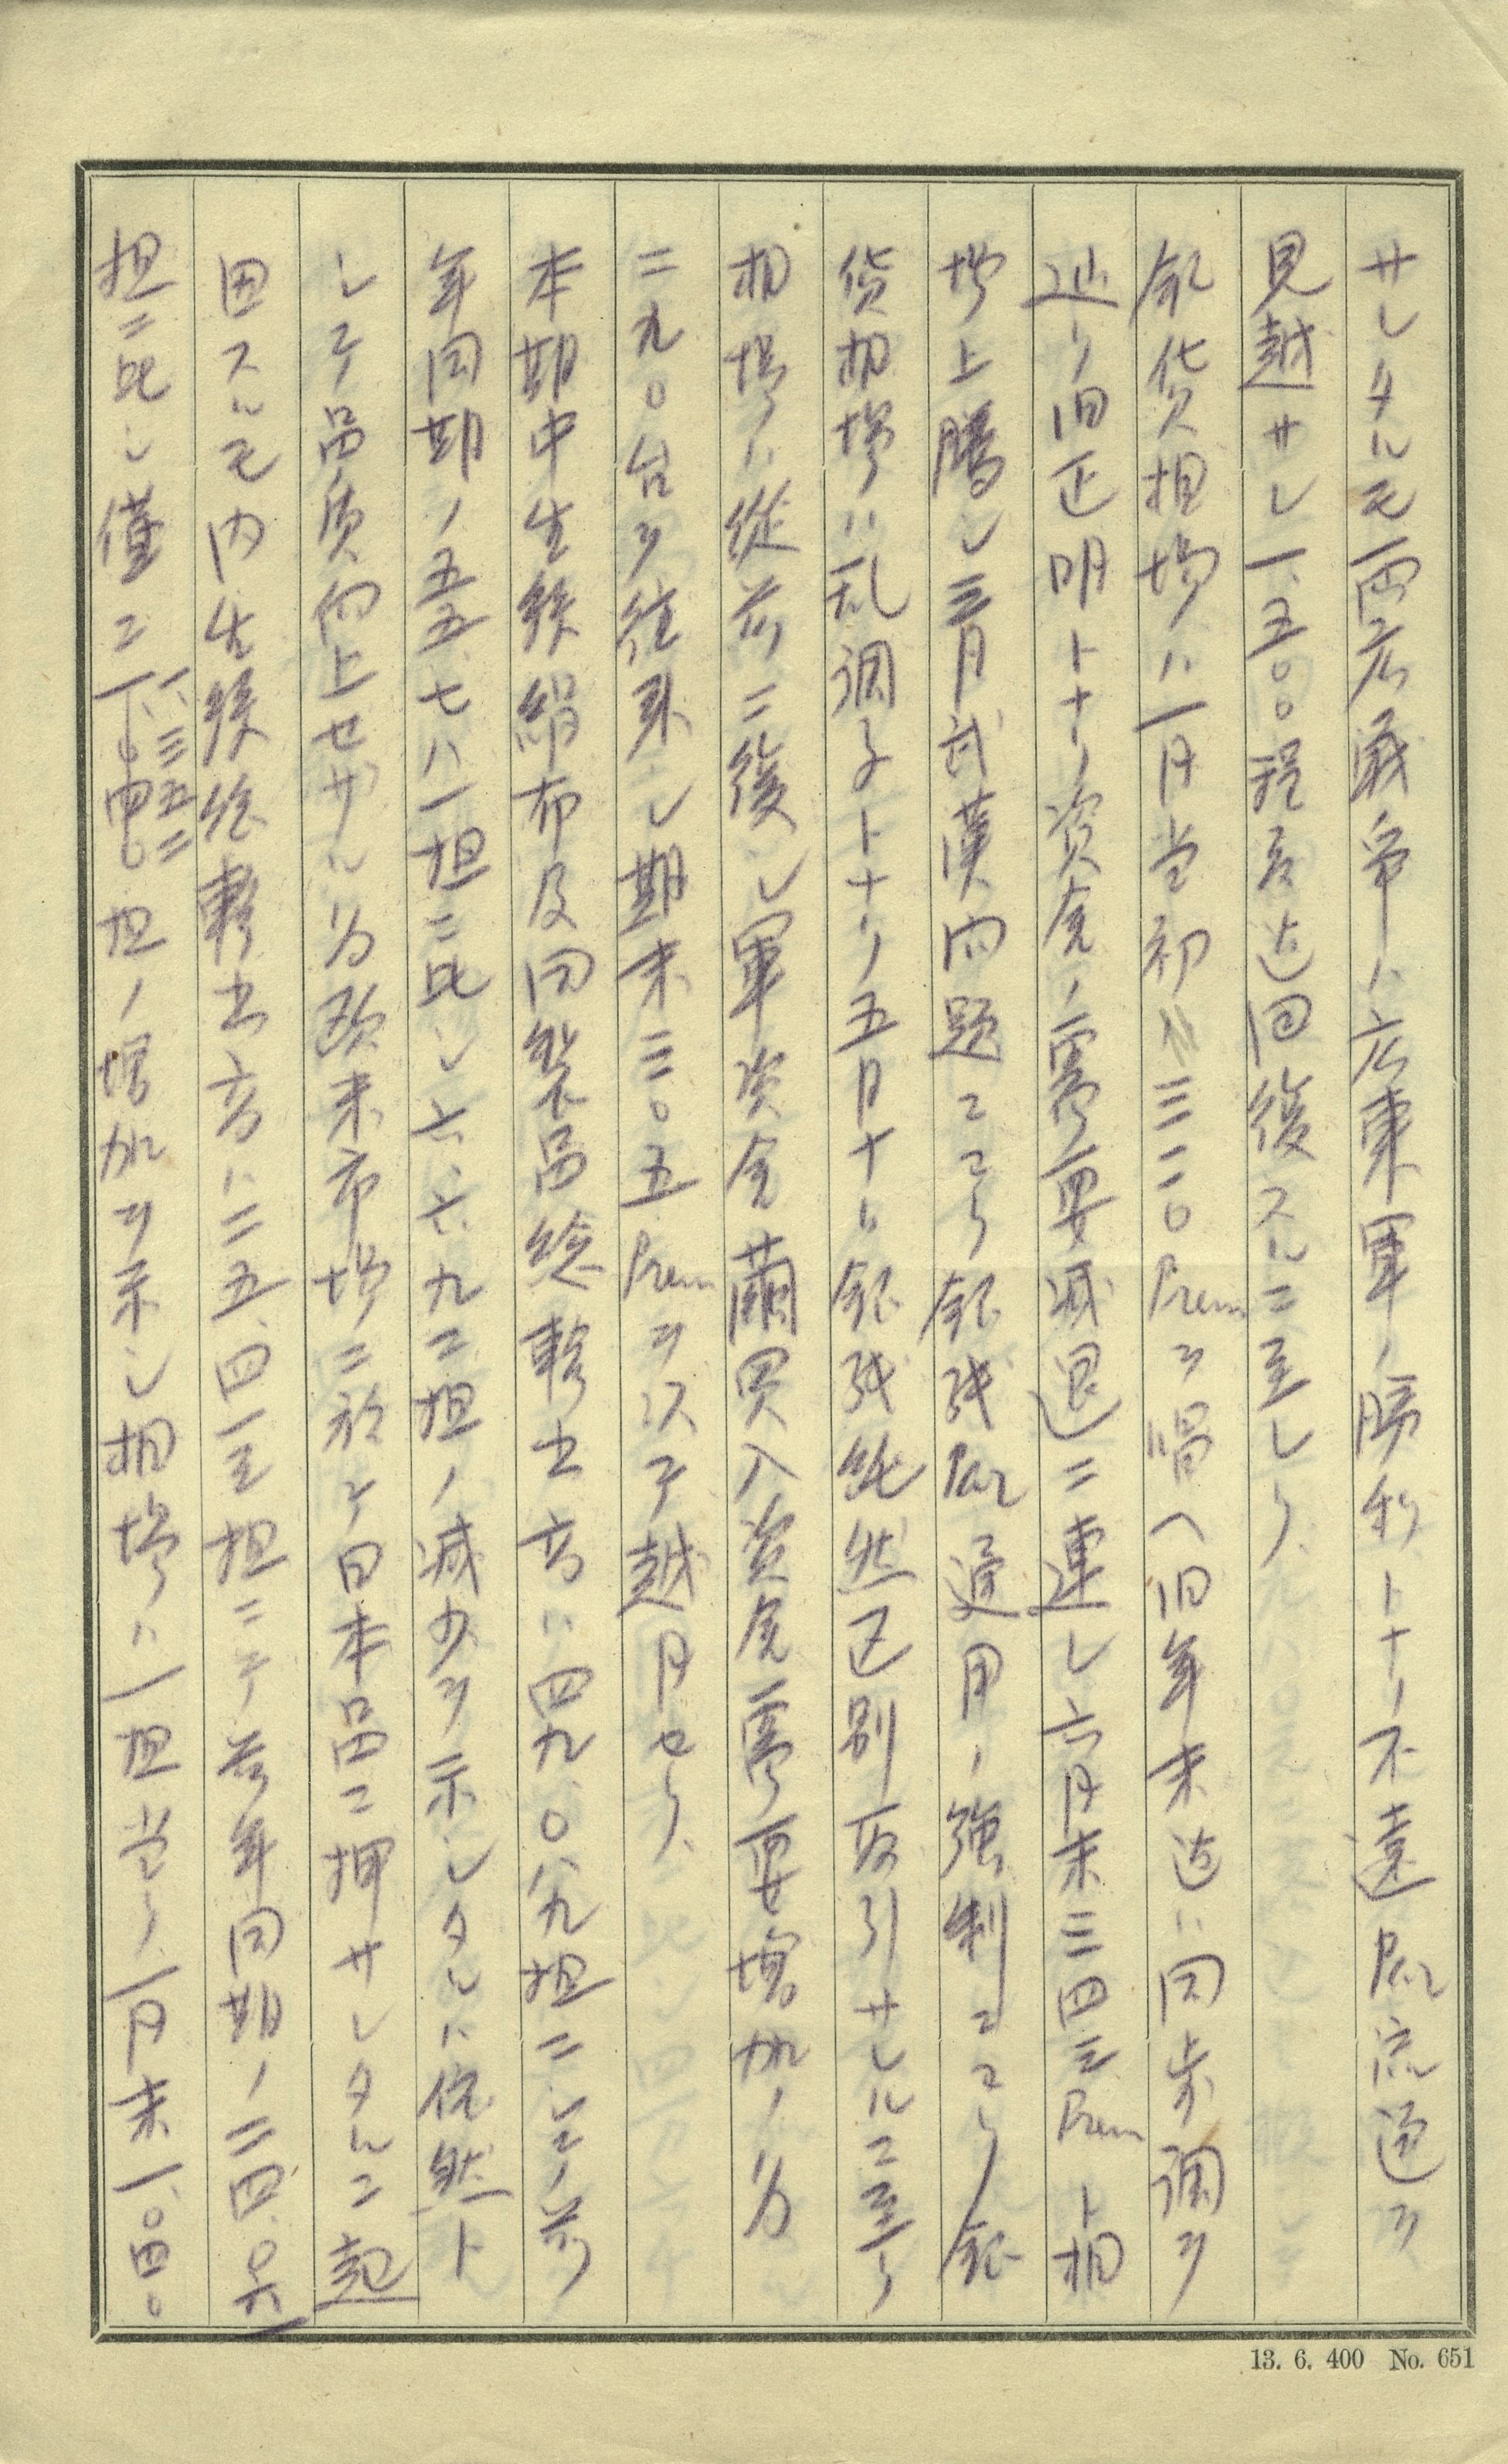 サレタルモ両広戦争ハ広東軍ノ勝利トナリ不遠Par流通ヲ
見越サレ一、五〇〇程度迄回復スルニ至レリ、
銀貨相場ハ一月当初ハ三二〇Premヲ唱ヘ旧年末迄ハ同歩調ヲ
辿リ旧正明トナリ資金ノ需要減退ニ連レ六月末三四三Premト相
場上騰シ三月武漢問題ニヨリ銀弐Par通用ノ強制ニヨリ銀
貨相場ハ乱調子トナリ五月十日銀弐純然区別取引サレルニ至リ
相場ハ従前ニ復シ軍資金繭買入資金需要増加ノ為
二九〇台ヲ往来シ期末三〇五Premヲ以テ越月セリ、
本期中生糸絹布及同製品総輸出高ハ四九、〇八九担ニシテ前
年同期ノ五五、七八一担ニ比シ六、六九二担ノ減少ヲ示シタルハ依然ト
シテ品質向上セザル為欧米市場ニ於テ日本品ニ押サレタルニ起
因スルモ内生糸総輸出高ハ二五、四一三担ニテ前年同期ノ二四、〇六一
担ニ比シ僅ニ一、三五二担ノ増加ヲ示シ相場ハ一担当リ一月末一、〇四〇
13. 6. 400 No. 651